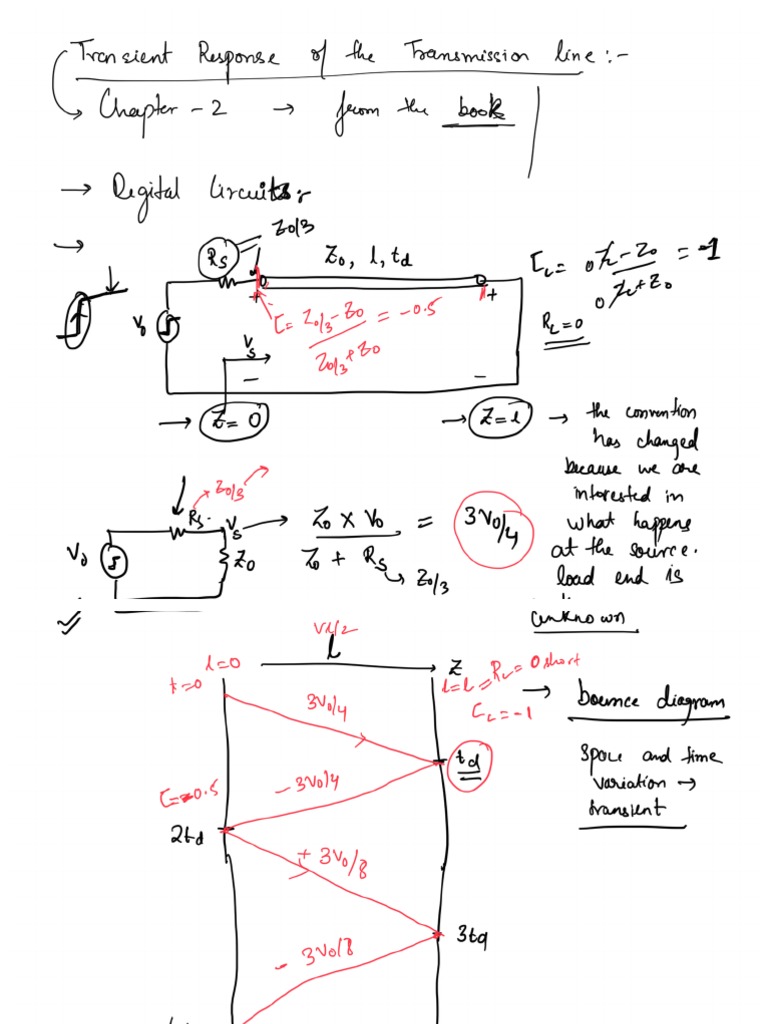 Transient Response of the Transmission line:-
Chapter - 2 → from the book
→ Digital Circuits:-
→
Z0/3
Rs
Z0, l, td
V0
Γ = (Z0/3 - Z0)/(Z0/3 + Z0) = -0.5
Vs
ΓL = (0 ZL - Z0)/(0 ZL + Z0) = -1
RL = 0
+
-
+
-
→ Z = 0
→ Z = l → the convention
has changed
because we are
interested in
what happens
at the source.
load end is
unknown
V0
Rs → Z0/3
Vs
Z0
→ (Z0 × V0)/(Z0 + Rs) = 3V0/4
Rs → Z0/3
Vl/2
l
l=0
t=0
Z
l=l = RL = 0 short
ΓL = -1
→ bounce diagram
space and time
variation →
transient
3V0/4
td
- 3V0/4
Γ=-0.5
2td
+ 3V0/8
3td
- 3V0/8